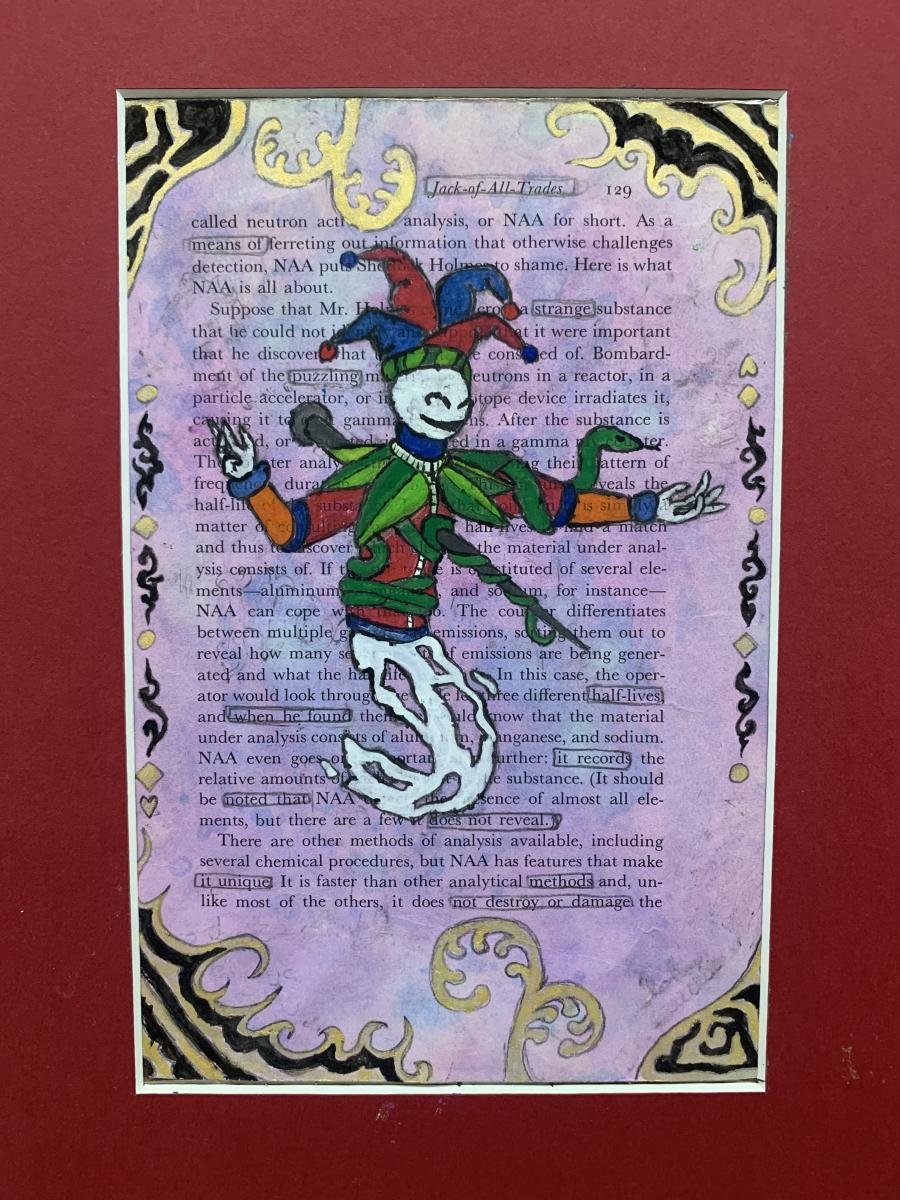 Jack-of-All-Trades 129
called neutron acti analysis, or NAA for short. As a
means of ferreting out information that otherwise challenges
detection, NAA puts Sherlock Holmes to shame. Here is what
NAA is all about.
Suppose that Mr. Holmes came across a strange substance
that he could not identify and that it were important
that he discover what consisted of. Bombard-
ment of the puzzling neutrons in a reactor, in a
particle accelerator, or in isotope device irradiates it,
causing it to gamma. After the substance is
activated, or in a gamma
The analy their pattern of
frequency dura reveals the
half-life of the substance is simply a
matter of consulting half-lives to find a match
and thus to discover the material under anal-
ysis consists of. If the is constituted of several ele-
ments—aluminum, and sodium, for instance—
NAA can cope with The counter differentiates
between multiple emissions, sorting them out to
reveal how many of emissions are being gener-
ated and what the half-life In this case, the oper-
ator would look through three different half-lives,
and when he found them would know that the material
under analysis consists of aluminum, manganese, and sodium.
NAA even goes further: it records the
relative amounts of the substance. (It should
be noted that NAA the presence of almost all ele-
ments, but there are a few it does not reveal.)
There are other methods of analysis available, including
several chemical procedures, but NAA has features that make
it unique. It is faster than other analytical methods and, un-
like most of the others, it does not destroy or damage the